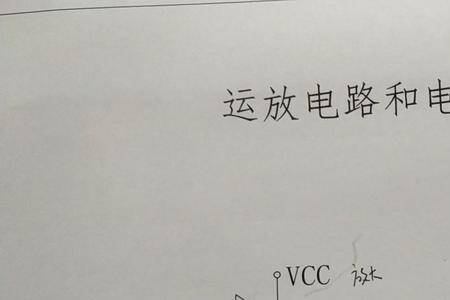 运放电路和电
VCC 放大